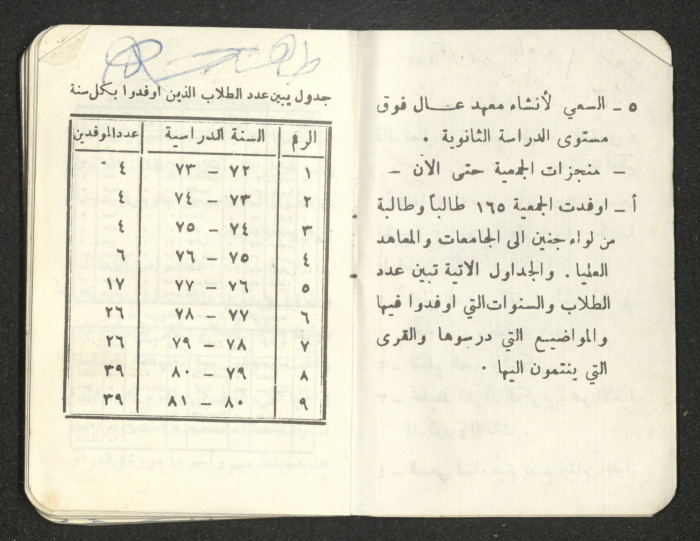 ٥ ــ السعي لأنشاء معهد عــال فوق
مستوى الدراسة الثانوية ٠
ــ منجزات الجمعية حتى الآن ــ
أ ــ اوفدت الجمعية ١٦٥ طالباً وطالبة
من لواء جنين الى الجامعات والمعاهد
العليا . والجداول الاتية تبين عدد
الطلاب والسنوات التي اوفدوا فيها
والمواضيع التي درسوها والقرى
التي ينتمون اليها ٠
جدول يبين عدد الطلاب الذين اوفدوا بكل سنة
الرم السنة الدراسية عدد الموفدين
١ ٧٢ – ٧٣ ٤
٢ ٧٣ – ٧٤ ٤
٣ ٧٤ – ٧٥ ٤
٤ ٧٥ – ٧٦ ٦
٥ ٧٦ – ٧٧ ١٧
٦ ٧٧ – ٧٨ ٢٦
٧ ٧٨ – ٧٩ ٢٦
٨ ٧٩ – ٨٠ ٣٩
٩ ٨٠ – ٨١ ٣٩